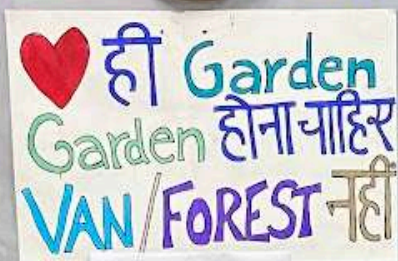 ❤️ ही Garden
Garden होना चाहिए
VAN/FOREST नहीं